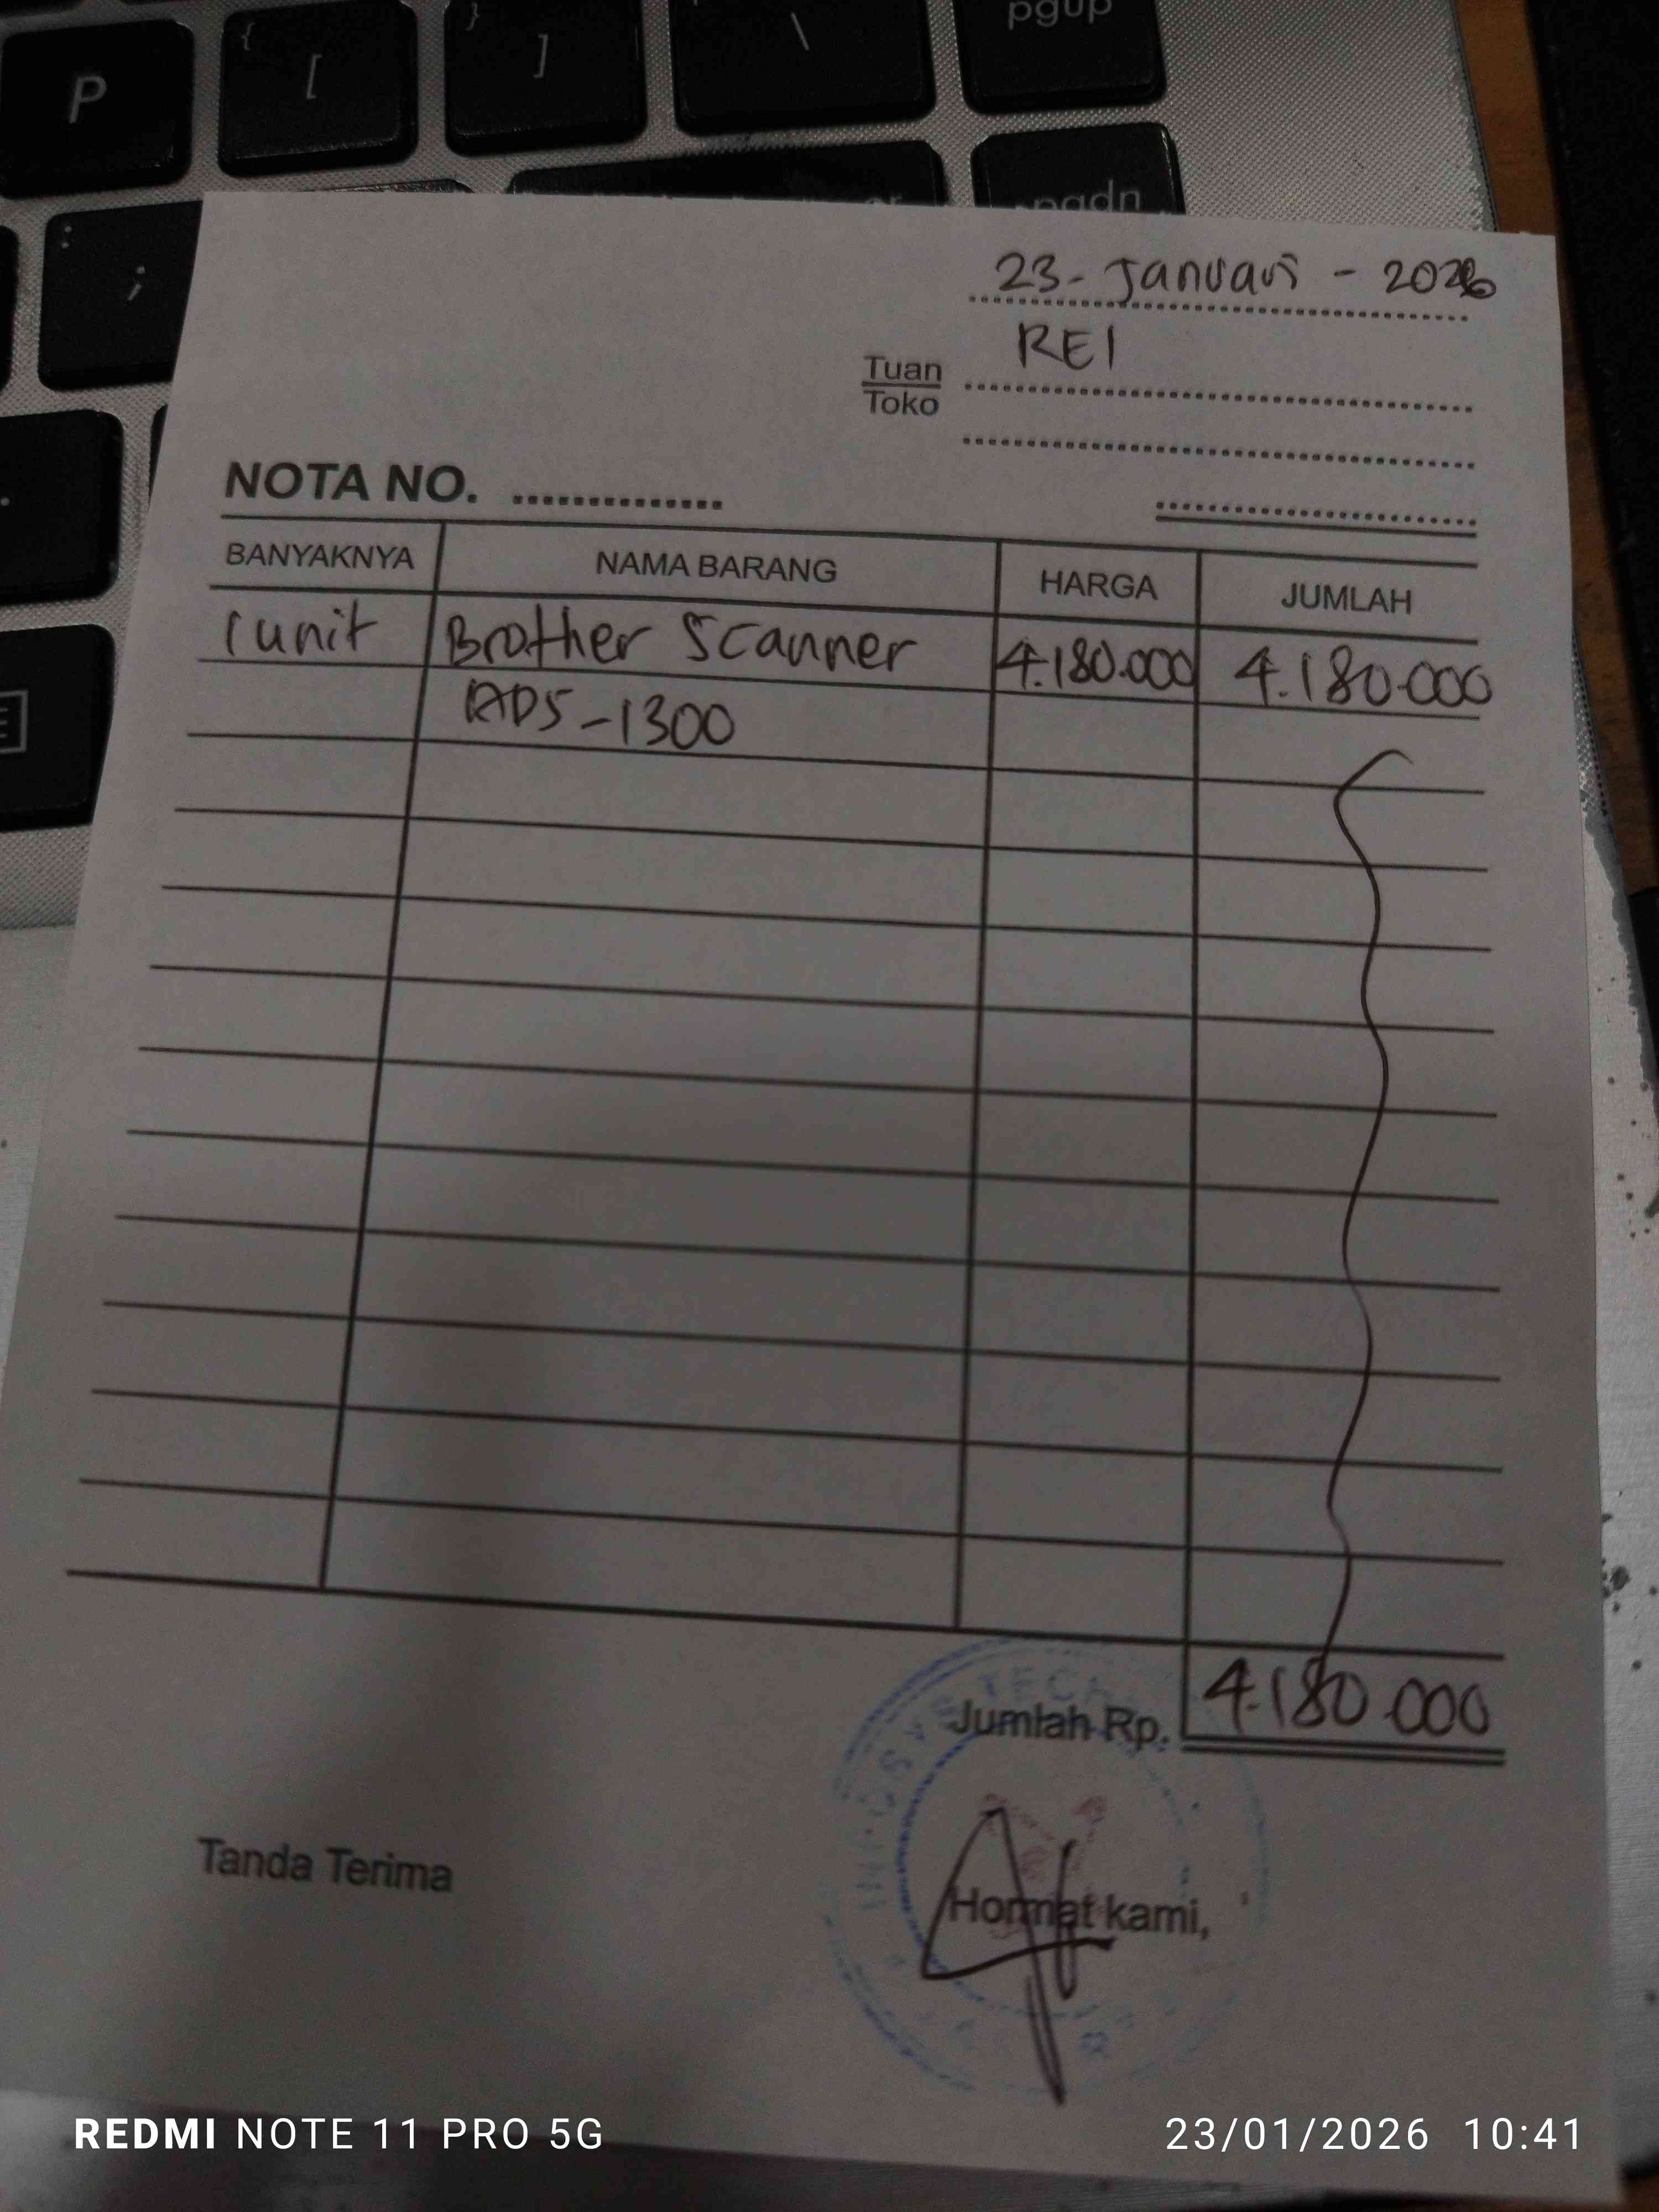 P
{
[
}
]
\
pgup
pgdn
:
;
23 - Januari - 2026
REI
Tuan
Toko
NOTA NO. ..............
BANYAKNYA NAMA BARANG HARGA JUMLAH
1 unit Brother Scanner 4.180.000 4.180.000
ADS - 1300
Jumlah Rp. 4.180.000
Tanda Terima
Hormat kami,
REDMI NOTE 11 PRO 5G
23/01/2026 10:41